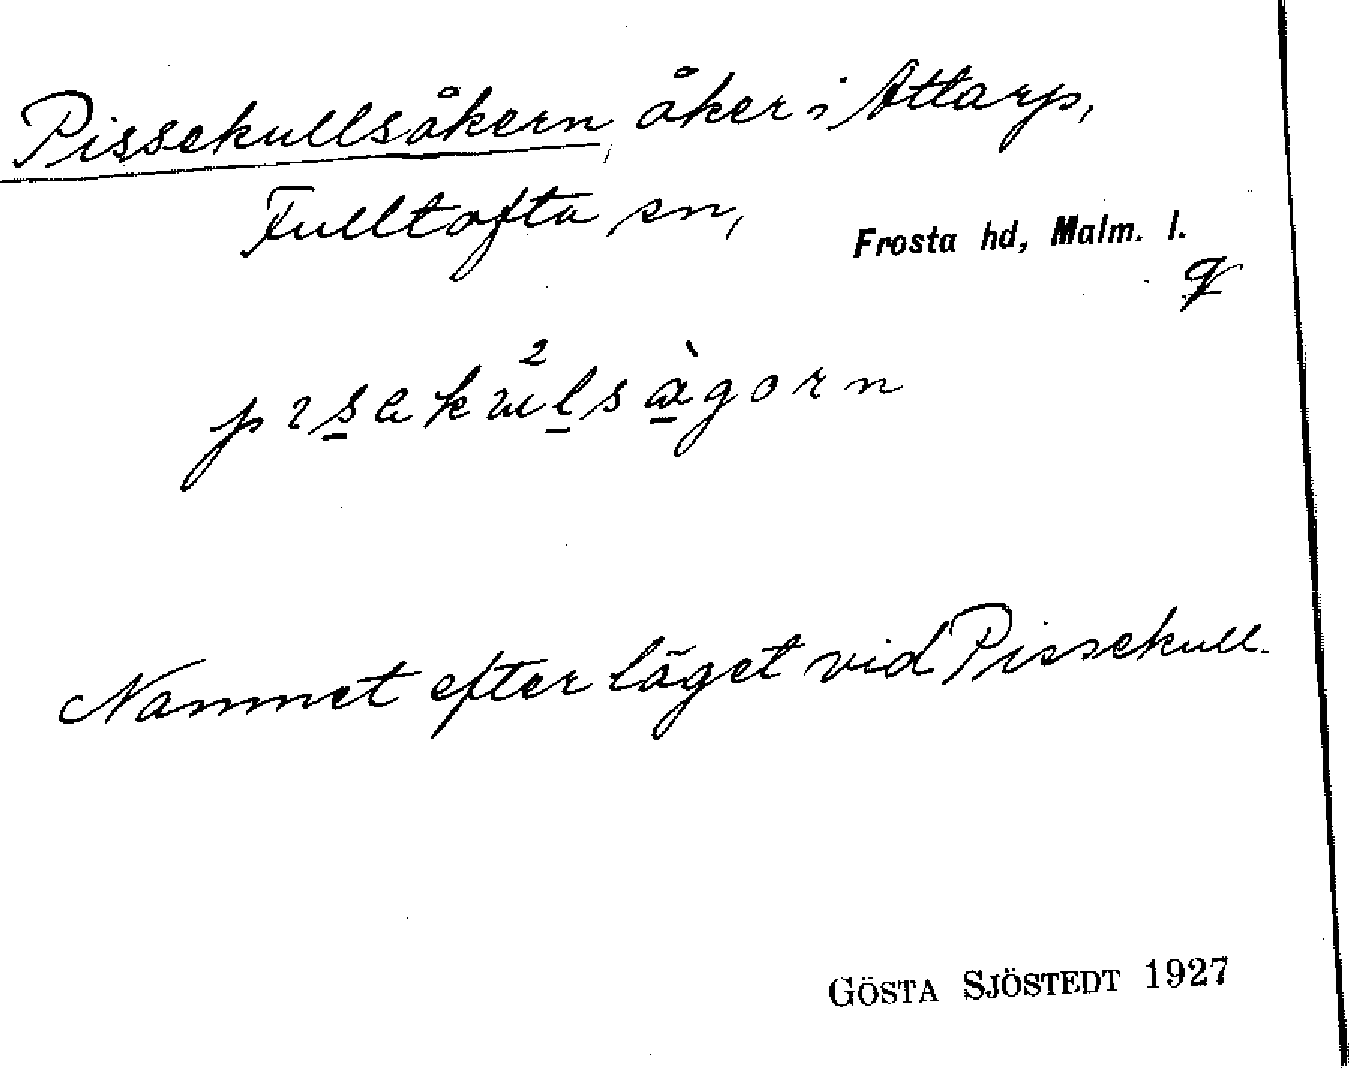 Pissekullsåkern, åker i Attarp,
Fulltofta sn,
Frosta hd, Malm. l.
Namnet efter läget vid Pissekull.
GÖSTA SJÖSTEDT 1927